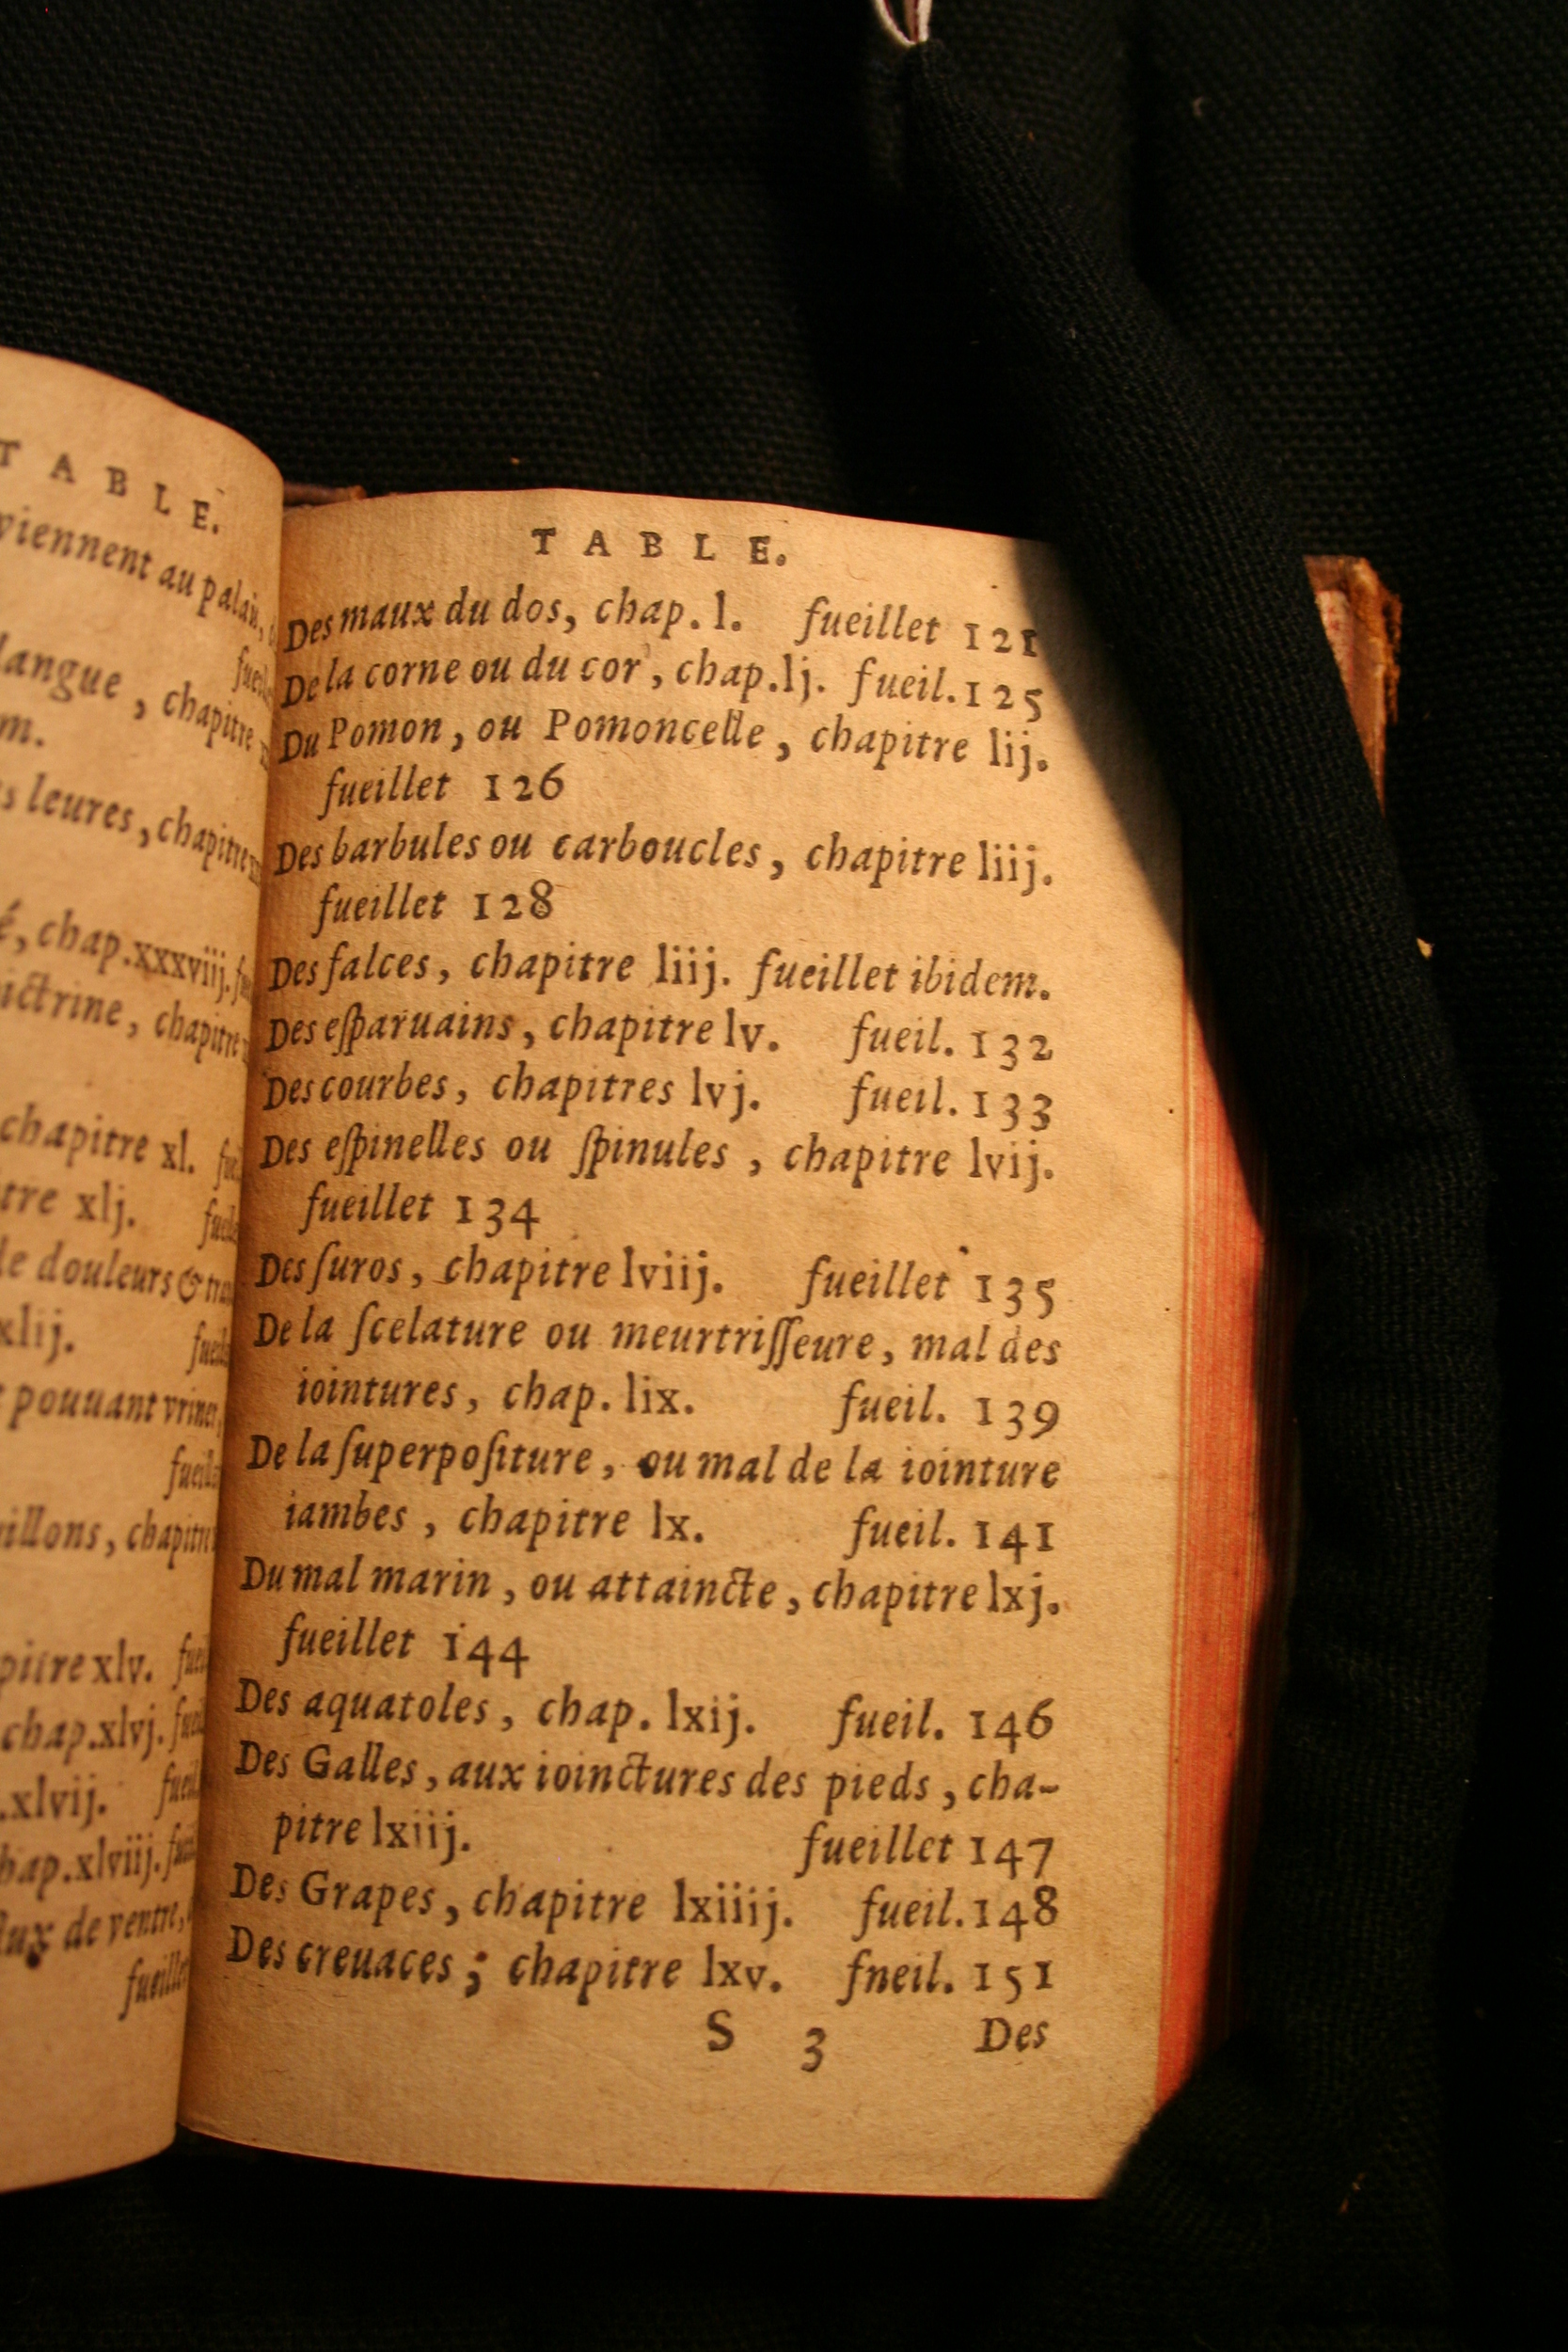 TABLE.
viennent au palais,
langue, chapitre
m.
s leures, chapitre
é, chap. xxxviij.
ictrine, chapitre
chapitre xl.
tre xlj.
de douleurs &
xlij.
pouuant vriner,
illons, chapitre
pitre xlv.
chap. xlvj.
.xlvij.
hap. xlviij.
lux de ventre,
fueillet
TABLE.
Des maux du dos, chap. l. fueillet 121
De la corne ou du cor, chap. lj. fueil. 125
Du Pomon, ou Pomoncelle, chapitre lij.
fueillet 126
Des barbules ou carboucles, chapitre liij.
fueillet 128
Des falces, chapitre liij. fueillet ibidem.
Des eſparuains, chapitre lv. fueil. 132
Des courbes, chapitres lvj. fueil. 133
Des eſpinelles ou ſpinules, chapitre lvij.
fueillet 134
Des ſuros, chapitre lviij. fueillet 135
De la ſcelature ou meurtriſſeure, mal des
iointures, chap. lix. fueil. 139
De la ſuperpoſiture, ou mal de la iointure
iambes, chapitre lx. fueil. 141
Du mal marin, ou attaincte, chapitre lxj.
fueillet 144
Des aquatoles, chap. lxij. fueil. 146
Des Galles, aux ioinctures des pieds, cha-
pitre lxiij. fueillet 147
Des Grapes, chapitre lxiiij. fueil. 148
Des creuaces; chapitre lxv. fneil. 151
S 3 Des